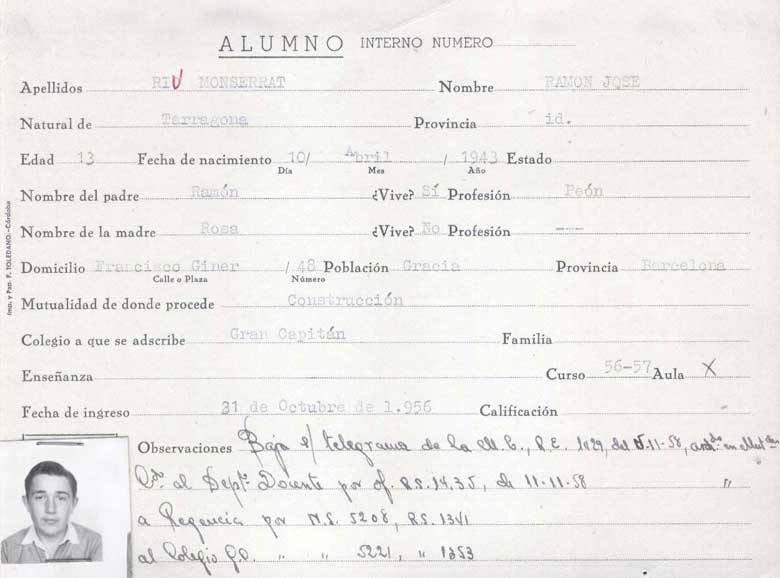 ALUMNO INTERNO NUMERO
Apellidos RIU MONSERRAT Nombre RAMON JOSE
Natural de Tarragona Provincia id.
Edad 13 Fecha de nacimiento 10/ Abril / 1943 Estado
Día Mes Año
Nombre del padre Ramón ¿Vive? Sí Profesión Peón
Nombre de la madre Rosa ¿Vive? No Profesión ---
Domicilio Francisco Giner / 48 Población Gracia Provincia Barcelona
Calle o Plaza Número
Mutualidad de donde procede Construcción
Colegio a que se adscribe Gran Capitán Familia
Enseñanza Curso 56-57 Aula X
Fecha de ingreso 31 de Octubre de 1.956 Calificación
Observaciones Baja s/ telegrama de la M.C., R.E. 1429, del 5-11-58, en
al Dept. Docente por of. R.S. 1435, de 11-11-58 "
a Regencia por N.S. 5208, RS. 1341
al Colegio G.C. " " 5221, " 1353
Imp. y Pap. F. TOLEDANO.-Córdoba